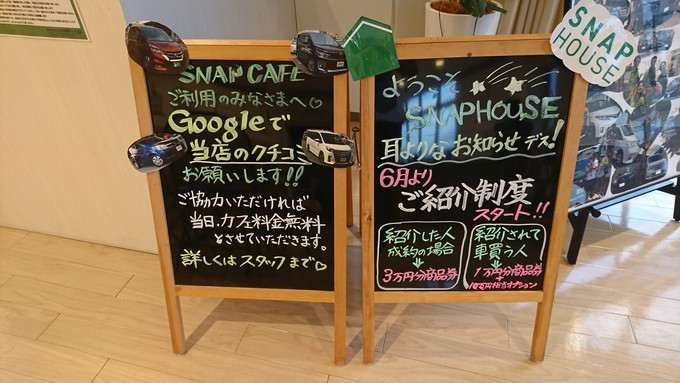 SNAP CAFE
ご利用のみなさまへ♡
Googleで
当店のクチコミ
お願いします!!
ご協力いただければ
当日、カフェ料金無料
とさせていただきます。
詳しくはスタッフまで♡
ようこそ
SNAPHOUSE
耳よりなお知らせデス!
6月より
ご紹介制度
スタート!!
紹介した人
成約の場合
↓
3万円分商品券
紹介されて
車買う人
↓
1万円分商品券
+
相当オプション
SNAP
HOUSE